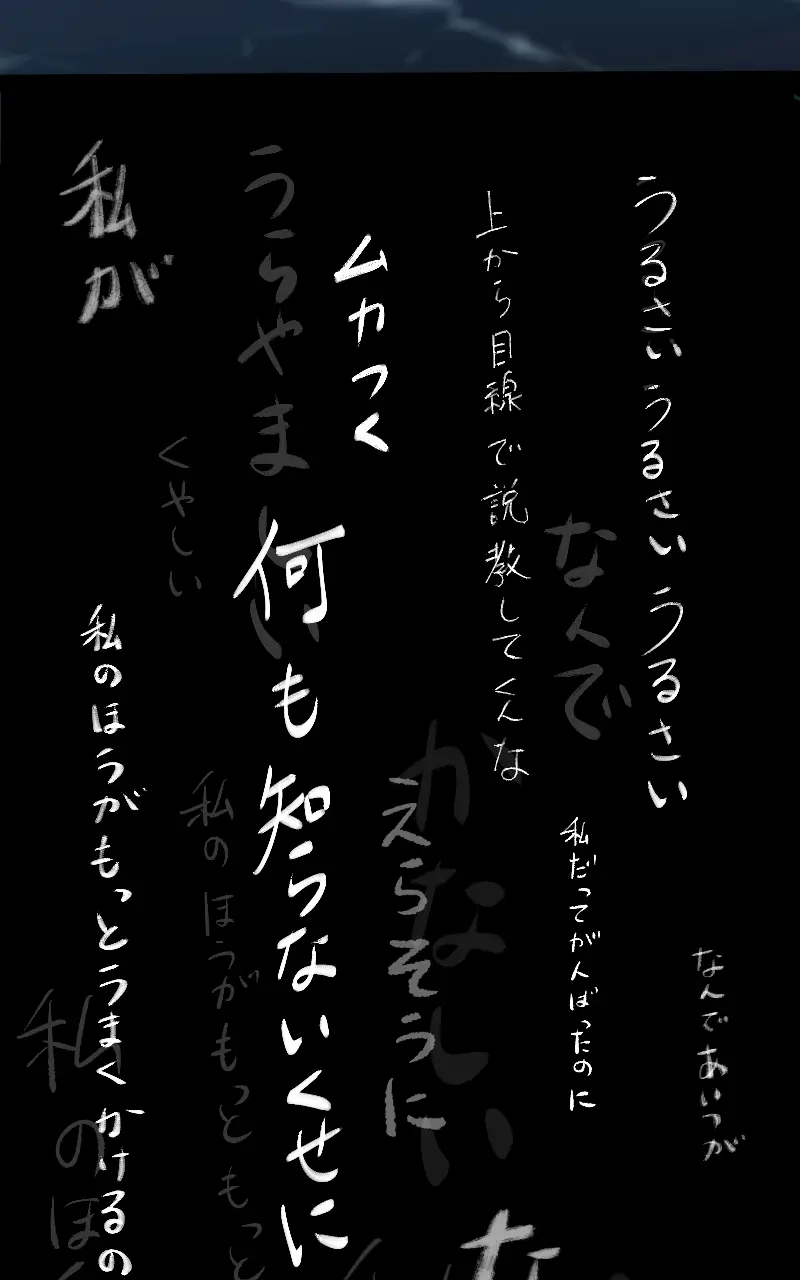 うるさいうるさいうるさい
なんであいつが
なんで
私だってがんばったのに
上から目線で説教してくんな
かなしい
えらそうに
な
ムカつく
何も知らないくせに
うらやましい
くやしい
私のほうがもっともっと
私が
私のほうがもっとうまくかけるの
私のほ